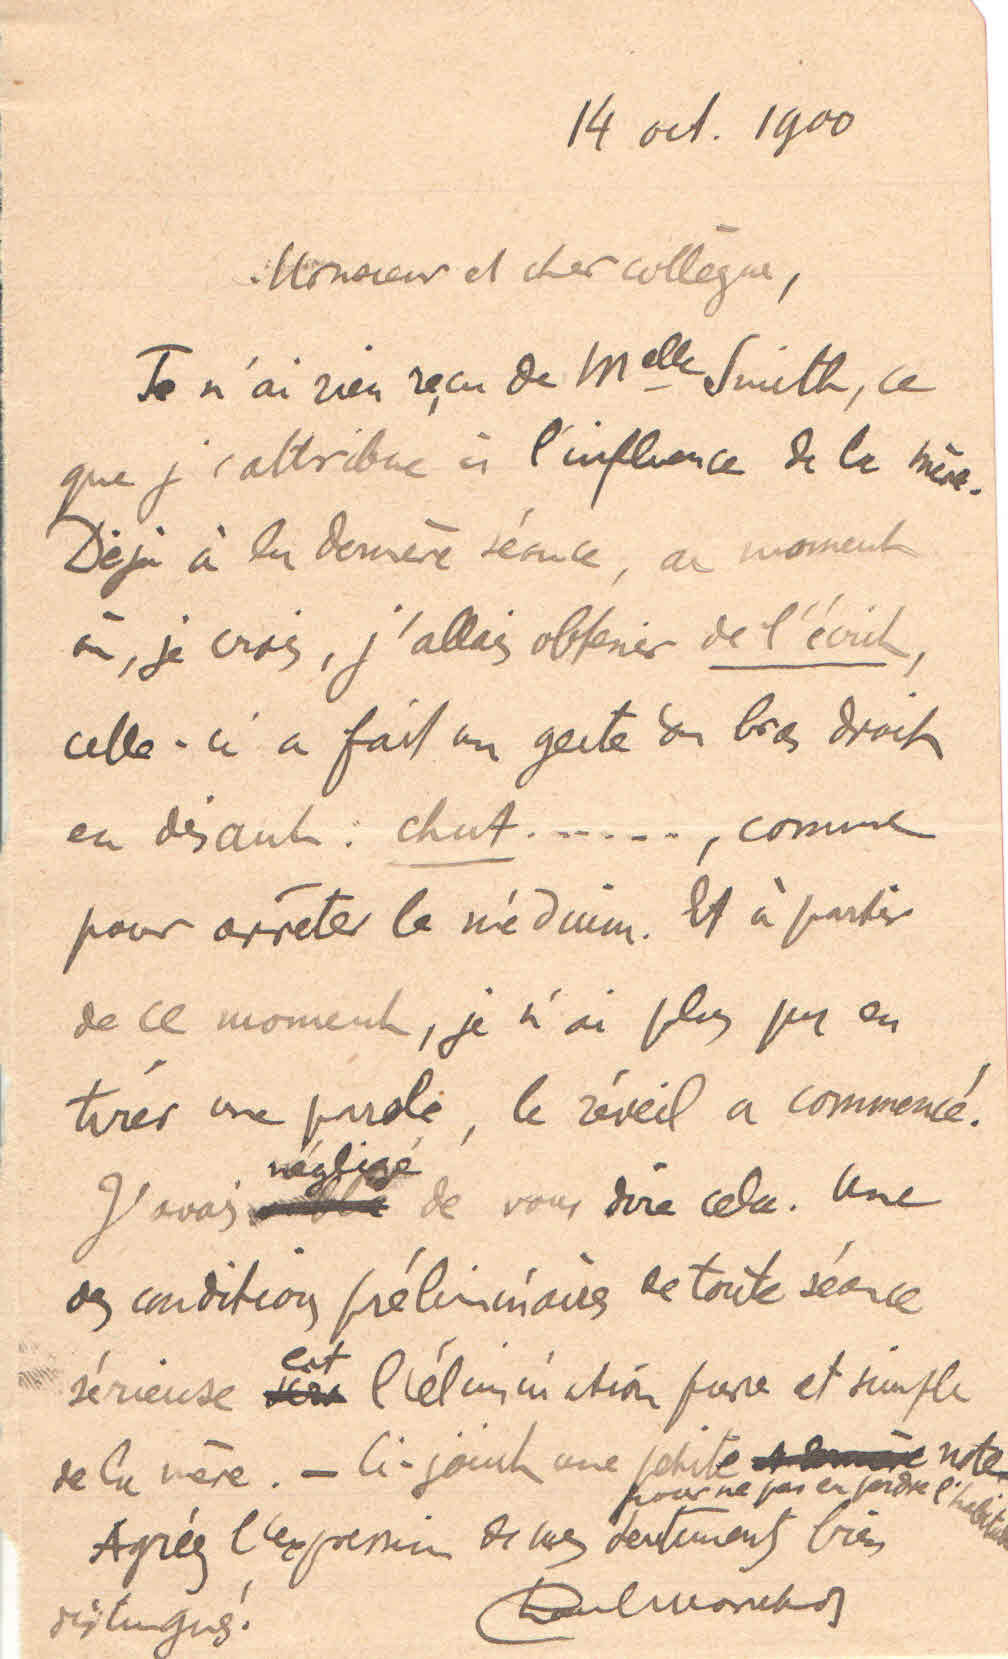 14 oct. 1900
Monsieur et cher collègue,
Je n'ai rien reçu de Melle Smith, ce
que j'attribue à l'influence de la mère.
Déjà à la dernière séance, au moment
où, je crois, j'allais obtenir de l'écrit,
celle-ci a fait un geste du bras droit
en disant : chut......, comme
pour arrêter le médium. Et à partir
de ce moment, je n'ai plus pu en
tirer une parole, le réveil a commencé.
négligé
J'avais de vous dire cela. Une
des conditions préliminaires de toute séance
est
sérieuse sera l'élimination pure et simple
de la mère. – Ci-joint une petite note
pour ne pas en perdre l'habitude
Agréez l'expression de mes sentiments bien
distingués.